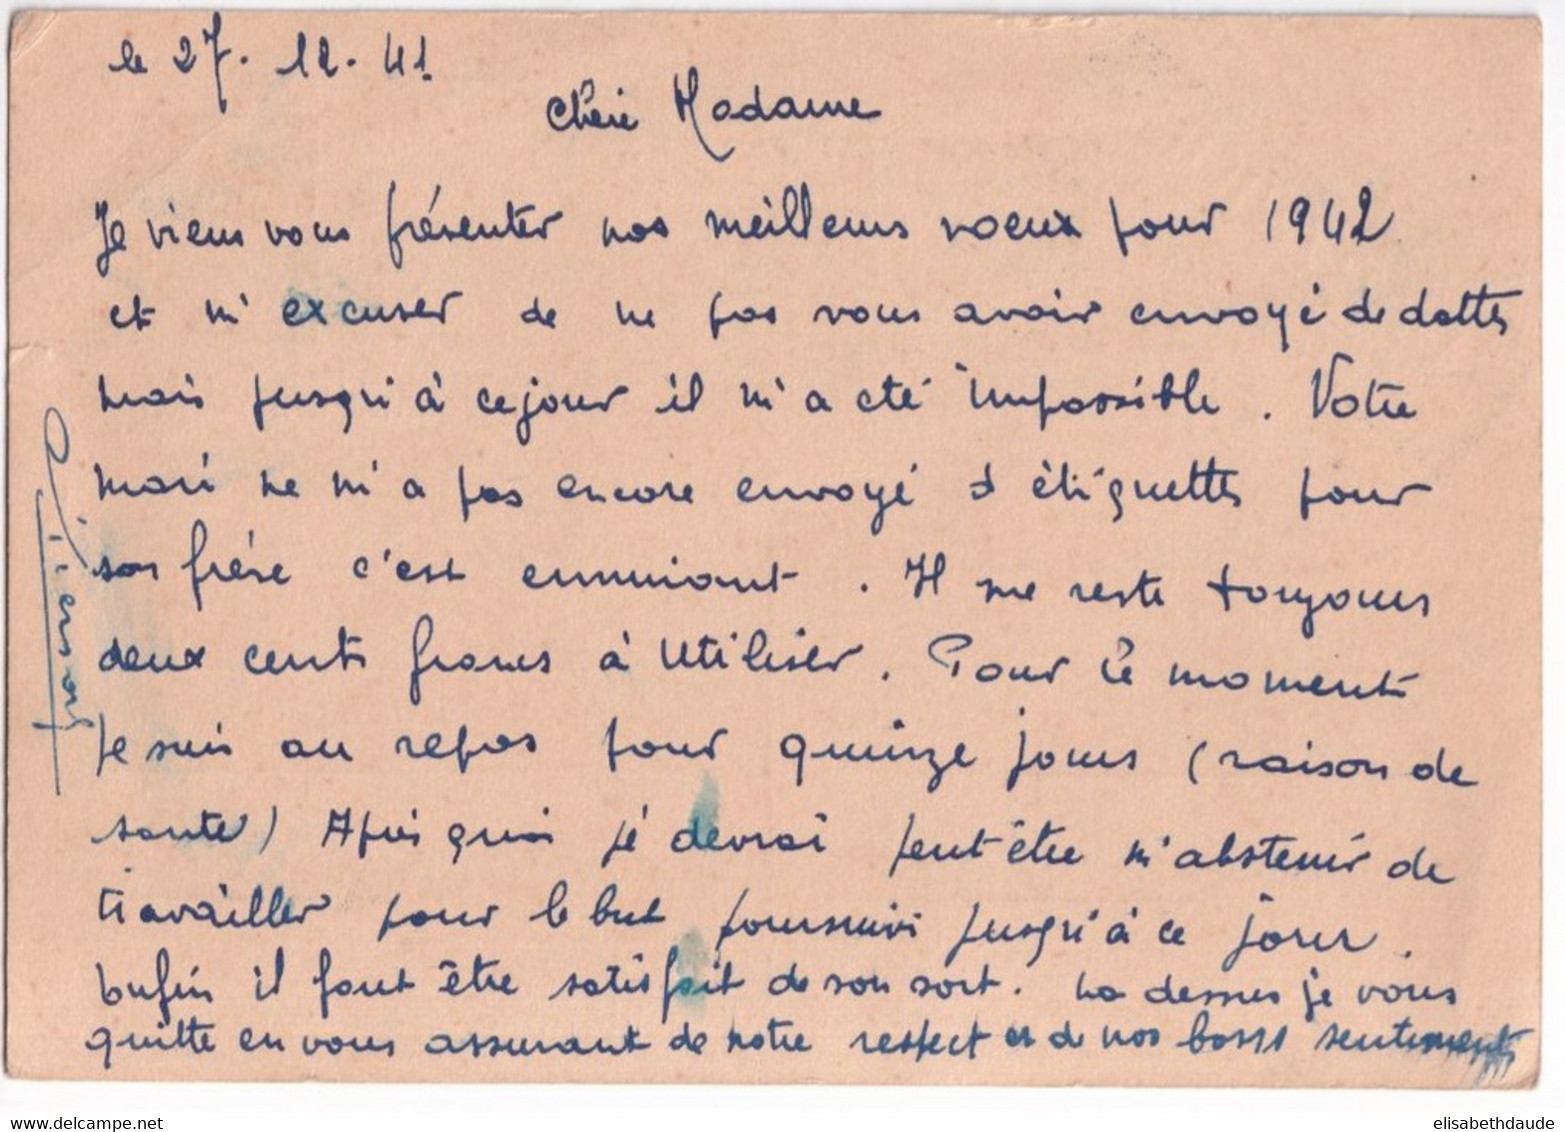 le 27. 12. 41.
Chère Madame
Je viens vous présenter nos meilleurs voeux pour 1942
et m'excuser de ne pas vous avoir envoyé de dattes
mais jusqu'à ce jour il m'a été impossible. Votre
mari ne m'a pas encore envoyé d'étiquettes pour
son frère c'est ennuiant. Il me reste toujours
deux cents francs à utiliser. Pour le moment
je suis au repos pour quinze jours (raison de
santé) Après quoi je devrai peut être m'abstenir de
travailler pour le but poursuivi jusqu'à ce jour.
Enfin il faut être satisfait de son sort. La dessus je vous
quitte en vous assurant de notre respect et de nos bons sentiments
elisabethdaude